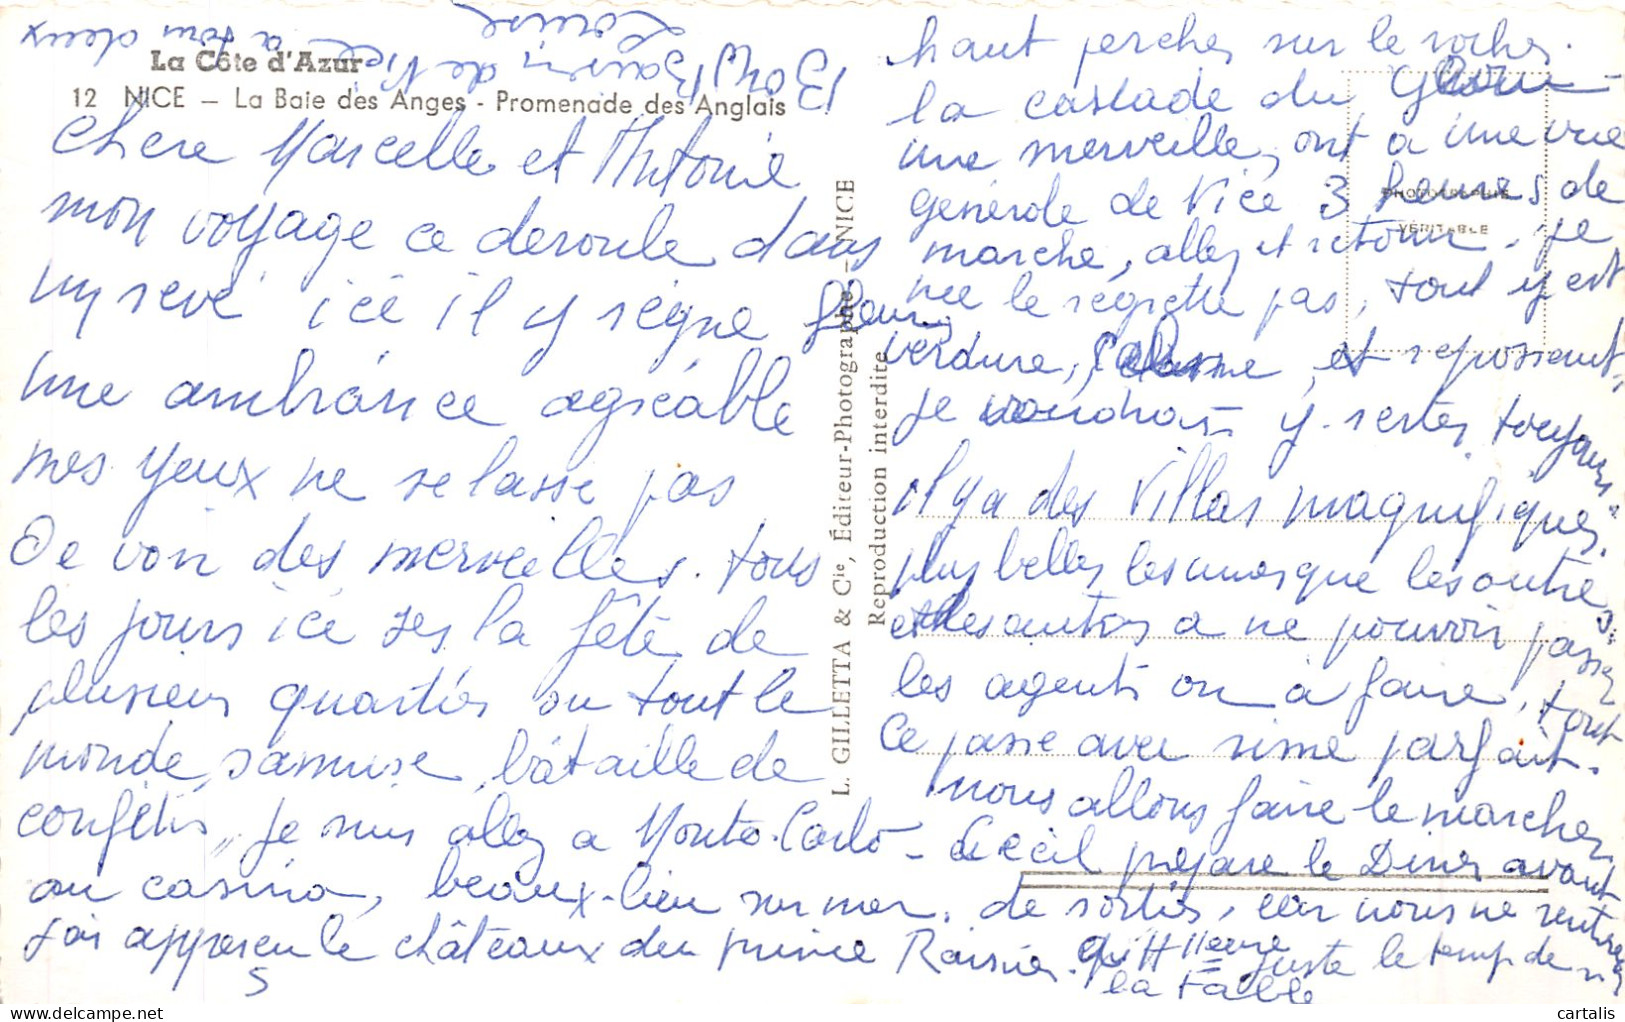 La Côte d'Azur
12 NICE – La Baie des Anges - Promenade des Anglais
chere Marcelle et Antoine
mon voyage ce deroule dans
un reve ice il y règne
une ambiance agréable
mes yeux ne se lasse pas
De voir des merveilles. tous
les jours ice ses la fête de
plusieurs quartiés ou tout le
monde samuse, bataille de
confétis, je suis allez a Monte-Carlo
au casino, beaux-lieu sur mer.
J'ai apperçu le châteaux du prince Rainier.
L. GILLETTA & Cie, Éditeur-Photographe – NICE
Reproduction interdite
PHOTOGRAPHIE
VÉRITABLE
haut percher sur le rocher.
la cascade du
une merveille, ont a une vue
générale de Nice 3 heures de
marche, allez et retour. je
nee le regrette pas, tout y est
fleuri
verdure, calme, et reposant,
je voudrais y rester toujours
il y a des villas magnifiques.
plus belles les unes que les autres
et les autres a ne pouvoir passer
les agents on a faire, tout
ce passe avec parfait.
nous allons faire le marcher
Cécil prépare le Diner avant
de sortir, car nous ne rentrer
qu'à 11 heure juste le temp de
la table
Bons Baiser de Nice a tous deux
Louise
cartalis